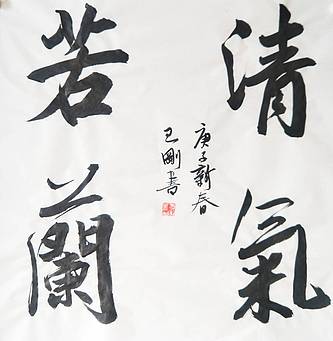 清氣
若蘭
庚子新春
已剛書